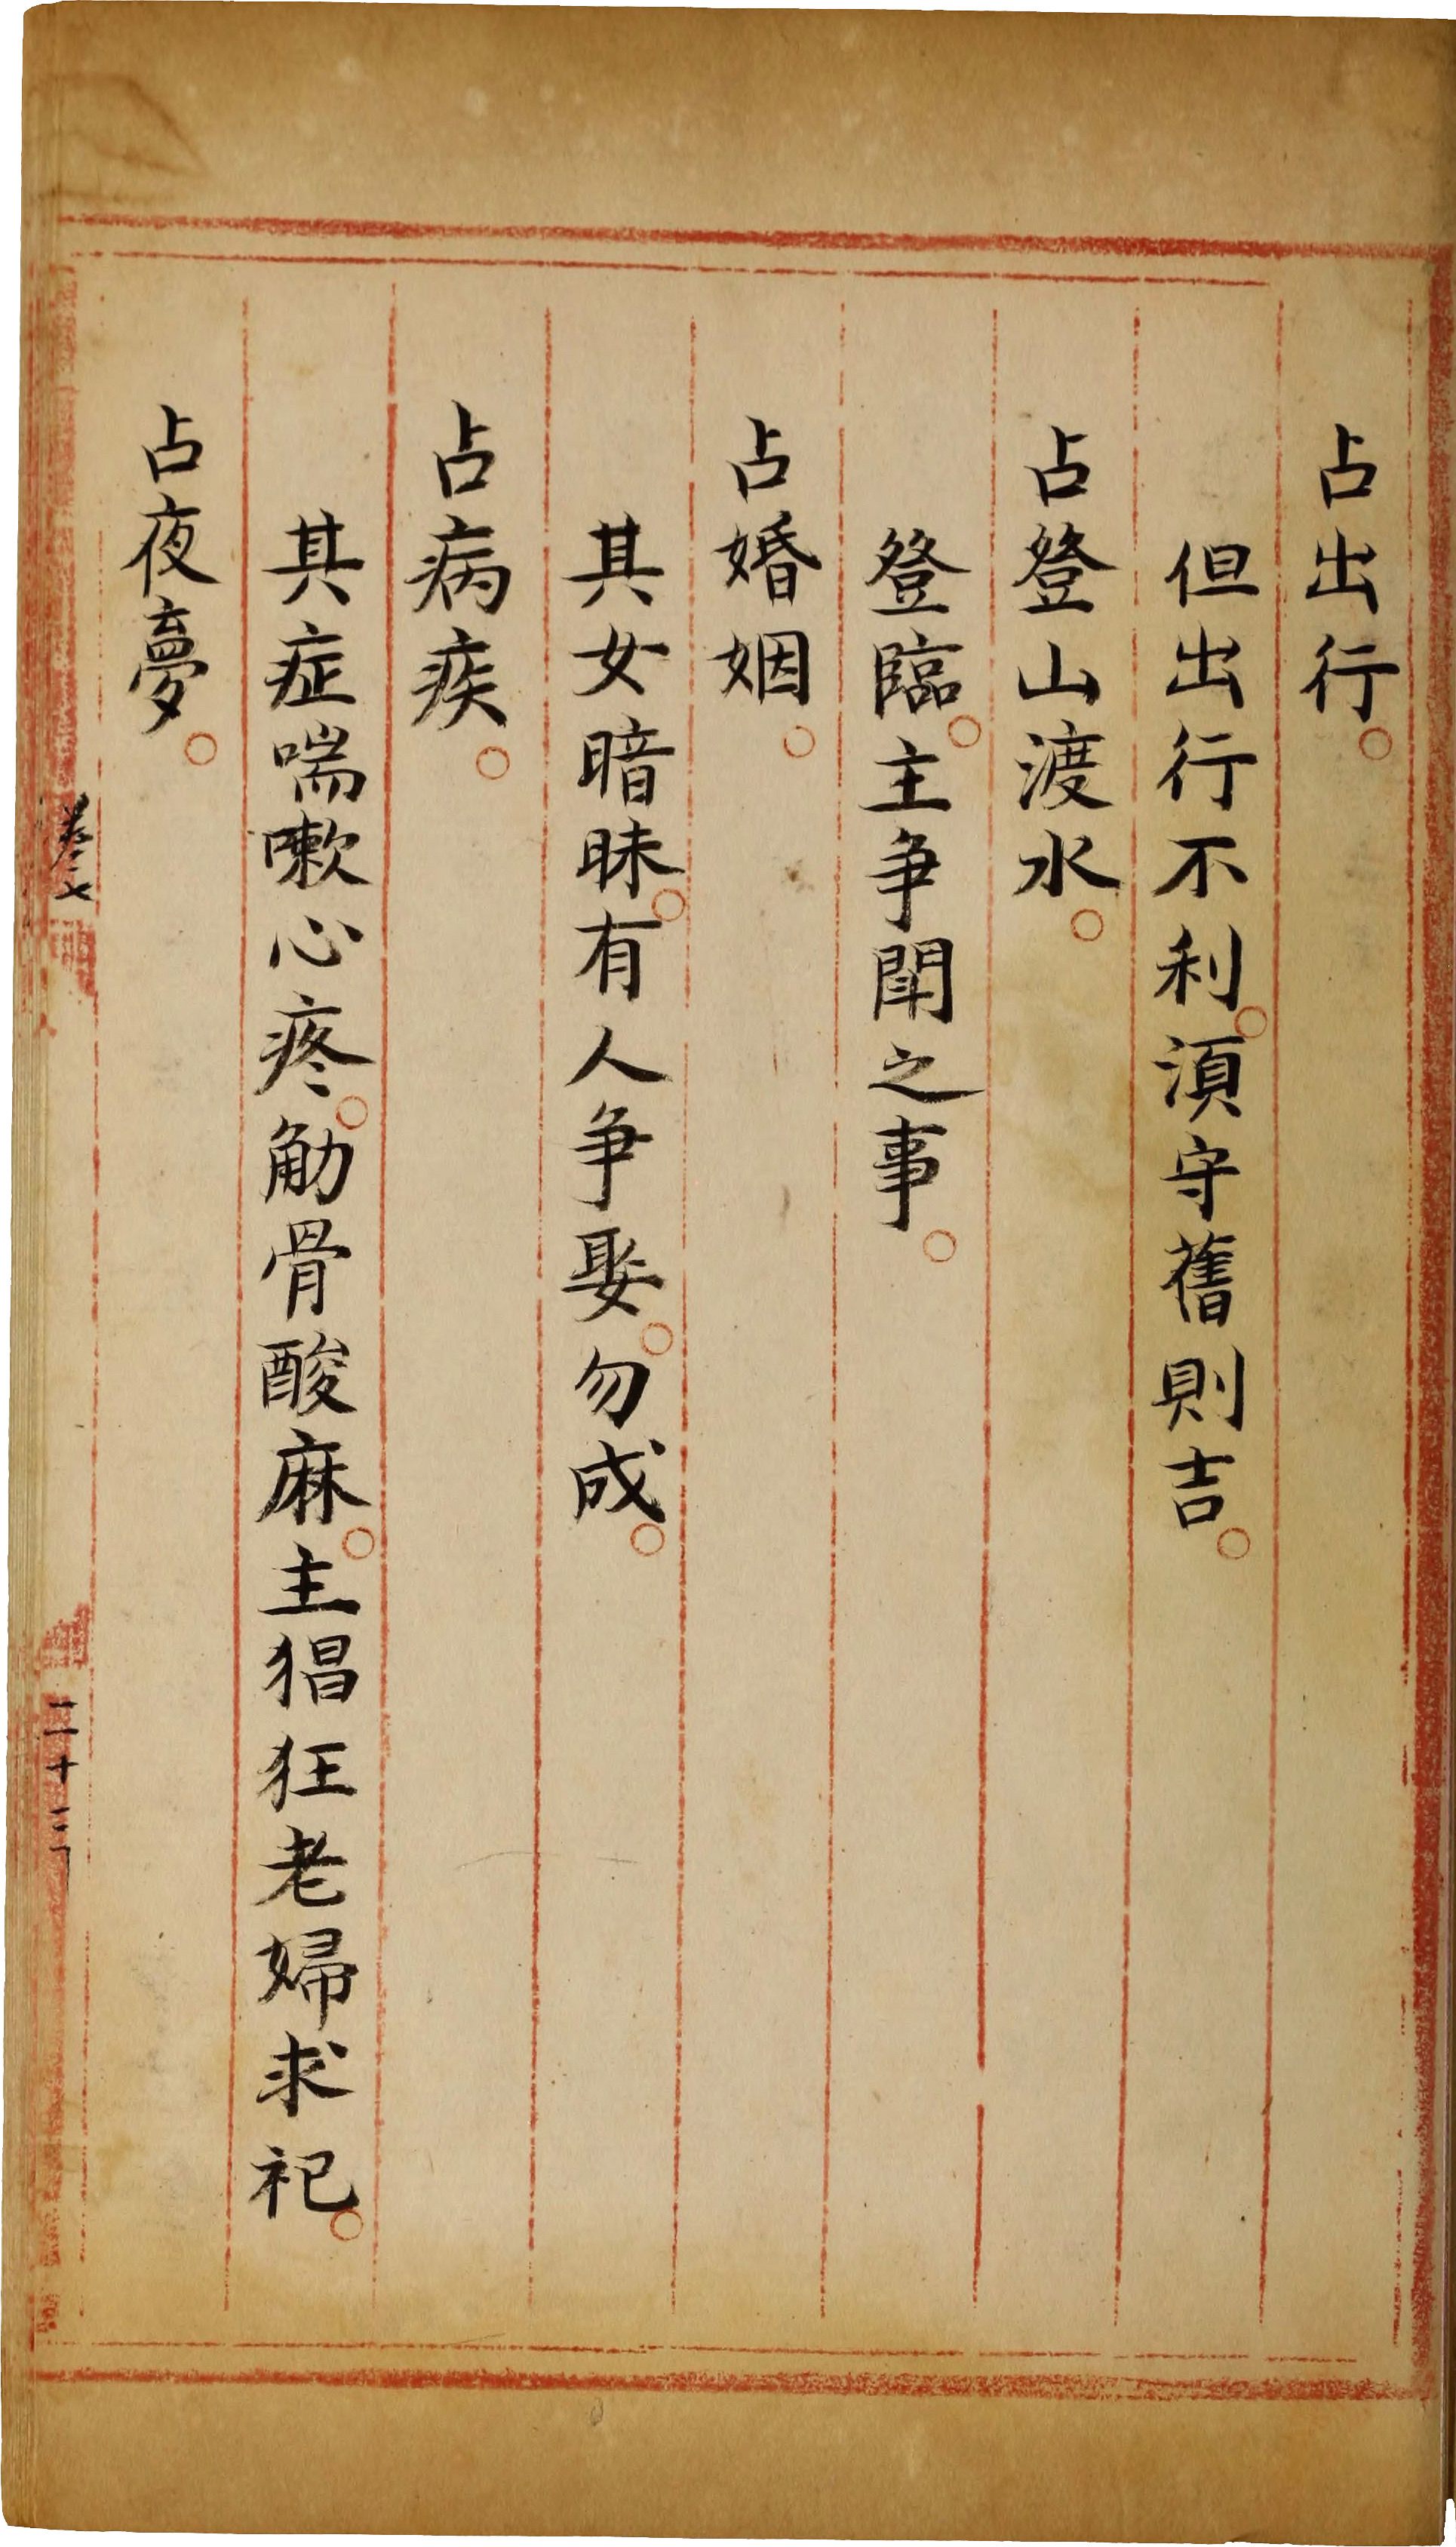 占出行。
但出行不利。須守舊則吉。
占登山渡水。
登臨。主争鬪之事。
占婚姻。
其女暗昧。有人争娶。勿成。
占病疾。
其症喘嗽心疼。觔骨酸麻。主猖狂老婦求祀。
占夜夢。
卷七
二十三